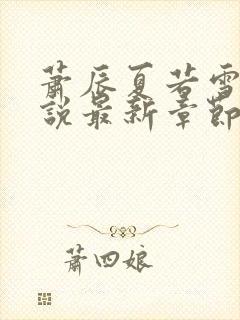 萧辰夏若雪
說最新章節
萧四娘